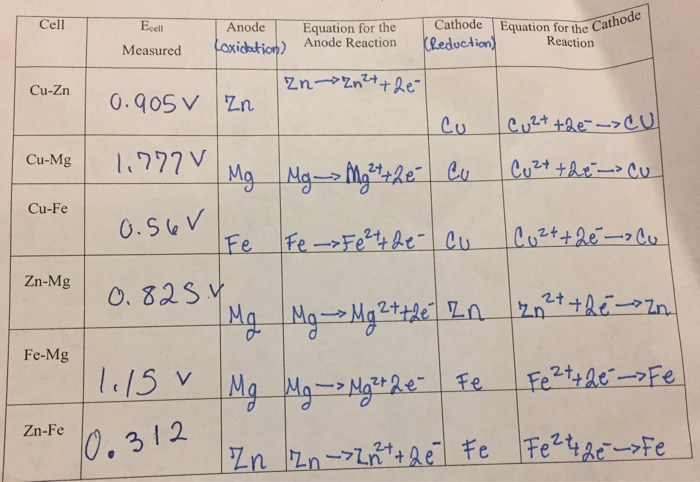 Cell Ecell Measured Anode (oxidation) Equation for the Anode Reaction Cathode (Reduction) Equation for the Cathode Reaction
Cu-Zn 0.905 V Zn Zn → Zn²⁺ + 2e⁻ Cu Cu²⁺ + 2e⁻ → Cu
Cu-Mg 1.777 V Mg Mg → Mg²⁺ + 2e⁻ Cu Cu²⁺ + 2e⁻ → Cu
Cu-Fe 0.56 V Fe Fe → Fe²⁺ + 2e⁻ Cu Cu²⁺ + 2e⁻ → Cu
Zn-Mg 0.825 V Mg Mg → Mg²⁺ + 2e⁻ Zn Zn²⁺ + 2e⁻ → Zn
Fe-Mg 1.15 V Mg Mg → Mg²⁺ 2e⁻ Fe Fe²⁺ + 2e⁻ → Fe
Zn-Fe 0.312 Zn Zn → Zn²⁺ + 2e⁻ Fe Fe²⁺ + 2e⁻ → Fe